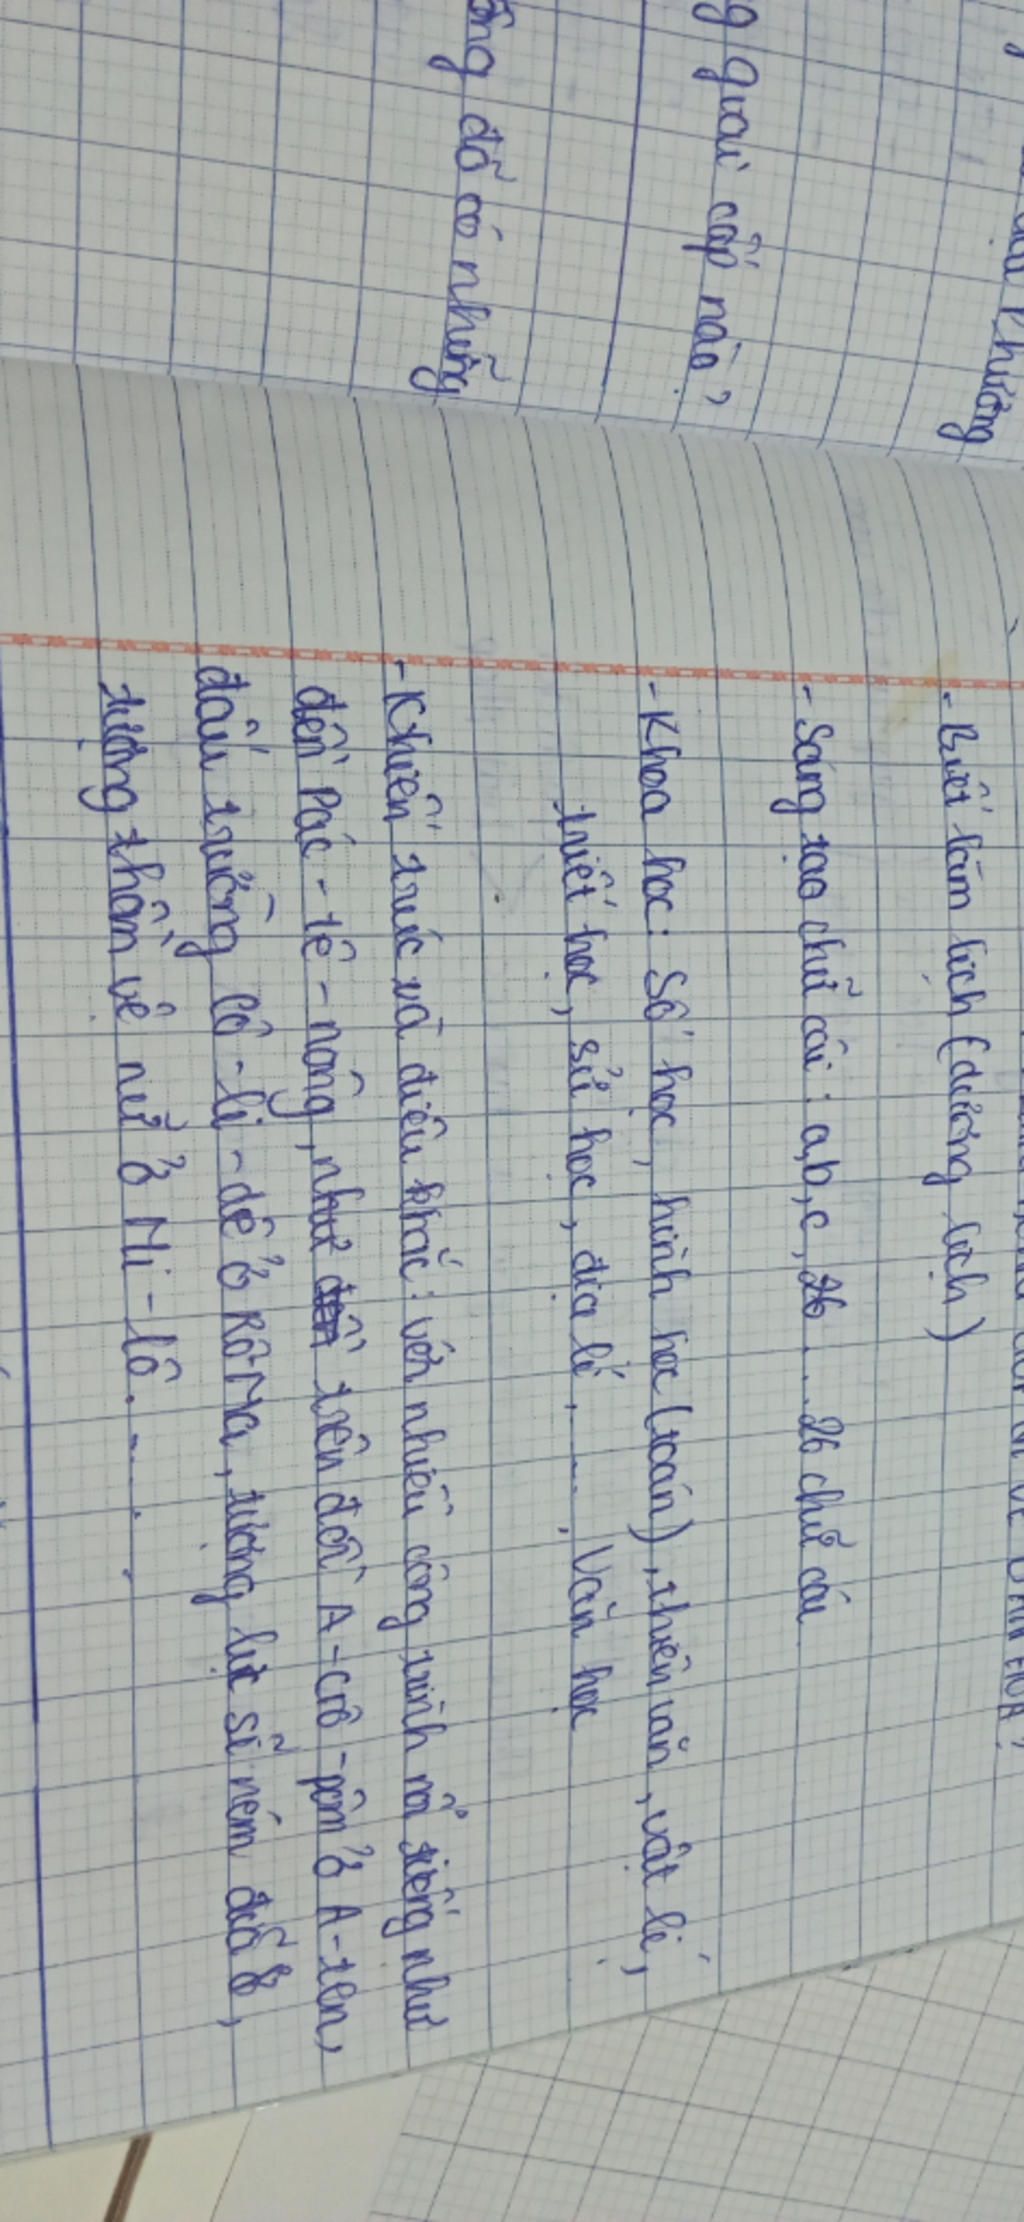 Phương
g giai cấp nào?
ông đó có những
VỀ VĂN HOÁ?
- Biết làm lịch (dương lịch)
- Sáng tạo chữ cái: a,b,c, 26.... 26 chữ cái
- Khoa học: Số học, hình học (toán), thiên văn, vật lí,
triết học, sử học, địa lí, ...., Văn học
- Khiến trúc và điêu khắc: với nhiều công trình nổi tiếng như
đền Pác-tê-nông, như trên đồi A-crô-pôn ở A-ten,
đấu trường Cô-li-dê ở Rô-Ma, tượng lực sĩ ném đĩa,
tượng thần vệ nữ ở Mi-lô.....